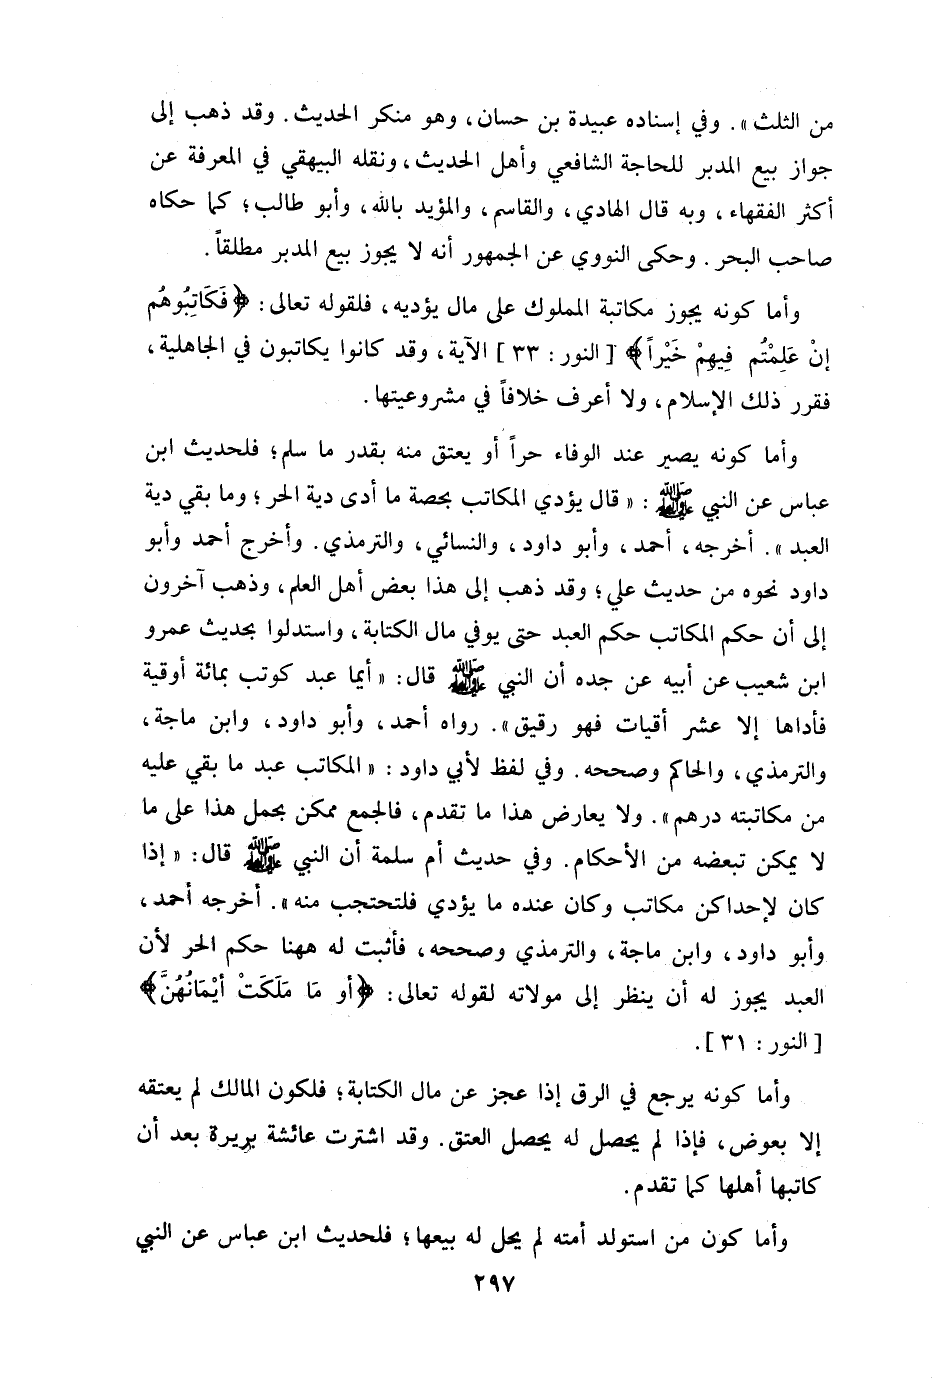 من الثلث ». وفي إسناده عبيدة بن حسان، وهو منكر الحديث. وقد ذهب إلى
جواز بيع المدبر للحاجة الشافعي وأهل الحديث، ونقله البيهقي في المعرفة عن
أكثر الفقهاء، وبه قال الهادي، والقاسم، والمؤيد بالله، وأبو طالب؛ كما حكاه
صاحب البحر. وحكى النووي عن الجمهور أنه لا يجوز بيع المدبر مطلقاً.
وأما كونه يجوز مكاتبة المملوك على مال يؤديه، فلقوله تعالى: ﴿فَكَاتِبُوهُم
إنْ عَلِمْتُم فِيهِمْ خَيْراً﴾ [ النور : ٣٣ ] الآية، وقد كانوا يكاتبون في الجاهلية،
فقرر ذلك الإسلام، ولا أعرف خلافاً في مشروعيتها.
وأما كونه يصير عند الوفاء حراً أو يعتق منه بقدر ما سلم؛ فلحديث ابن
عباس عن النبي ﷺ : « قال يؤدي المكاتب بحصة ما أدى دية الحر؛ وما بقي دية
العبد ». أخرجه، أحمد، وأبو داود، والنسائي، والترمذي. وأخرج أحمد وأبو
داود نحوه من حديث علي؛ وقد ذهب إلى هذا بعض أهل العلم، وذهب آخرون
إلى أن حكم المكاتب حكم العبد حتى يوفي مال الكتابة، واستدلوا بحديث عمرو
ابن شعيب عن أبيه عن جده أن النبي ﷺ قال: « أيما عبد كوتب بمائة أوقية
فأداها إلا عشر أقيات فهو رقيق». رواه أحمد، وأبو داود، وابن ماجة،
والترمذي، والحاكم وصححه. وفي لفظ لأبي داود: « المكاتب عبد ما بقي عليه
من مكاتبته درهم». ولا يعارض هذا ما تقدم، فالجمع ممكن بحمل هذا على ما
لا يمكن تبعضه من الأحكام. وفي حديث أم سلمة أن النبي ﷺ قال: « إذا
كان لإحداكن مكاتب وكان عنده ما يؤدي فلتحتجب منه». أخرجه أحمد،
وأبو داود، وابن ماجة، والترمذي وصححه، فأثبت له ههنا حكم الحر لأن
العبد يجوز له أن ينظر إلى مولاته لقوله تعالى: ﴿أو مَا مَلَكَتْ أَيْمَانُهُنَّ﴾
[ النور : ٣١ ].
وأما كونه يرجع في الرق إذا عجز عن مال الكتابة؛ فلكون المالك لم يعتقه
إلا بعوض، فإذا لم يحصل له يحصل العتق. وقد اشترت عائشة بريرة بعد أن
كاتبها أهلها كما تقدم.
وأما كون من استولد أمته لم يحل له بيعها؛ فلحديث ابن عباس عن النبي
٢٩٧